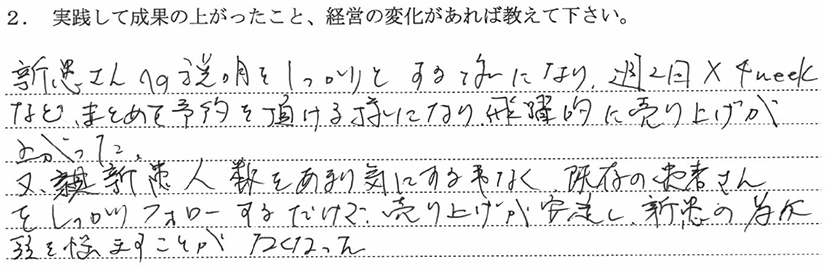 2. 実践して成果の上がったこと、経営の変化があれば教えて下さい。
新患さんへの説明をしっかりとする様になり、週2回×4week
など、まとめて予約を頂ける様になり、飛躍的に売り上げが
上がった。
又、新患人数をあまり気にする事なく、既存の患者さん
をしっかりフォローするだけで、売り上げが安定し、新患の為に
頭を悩ますことがなくなった